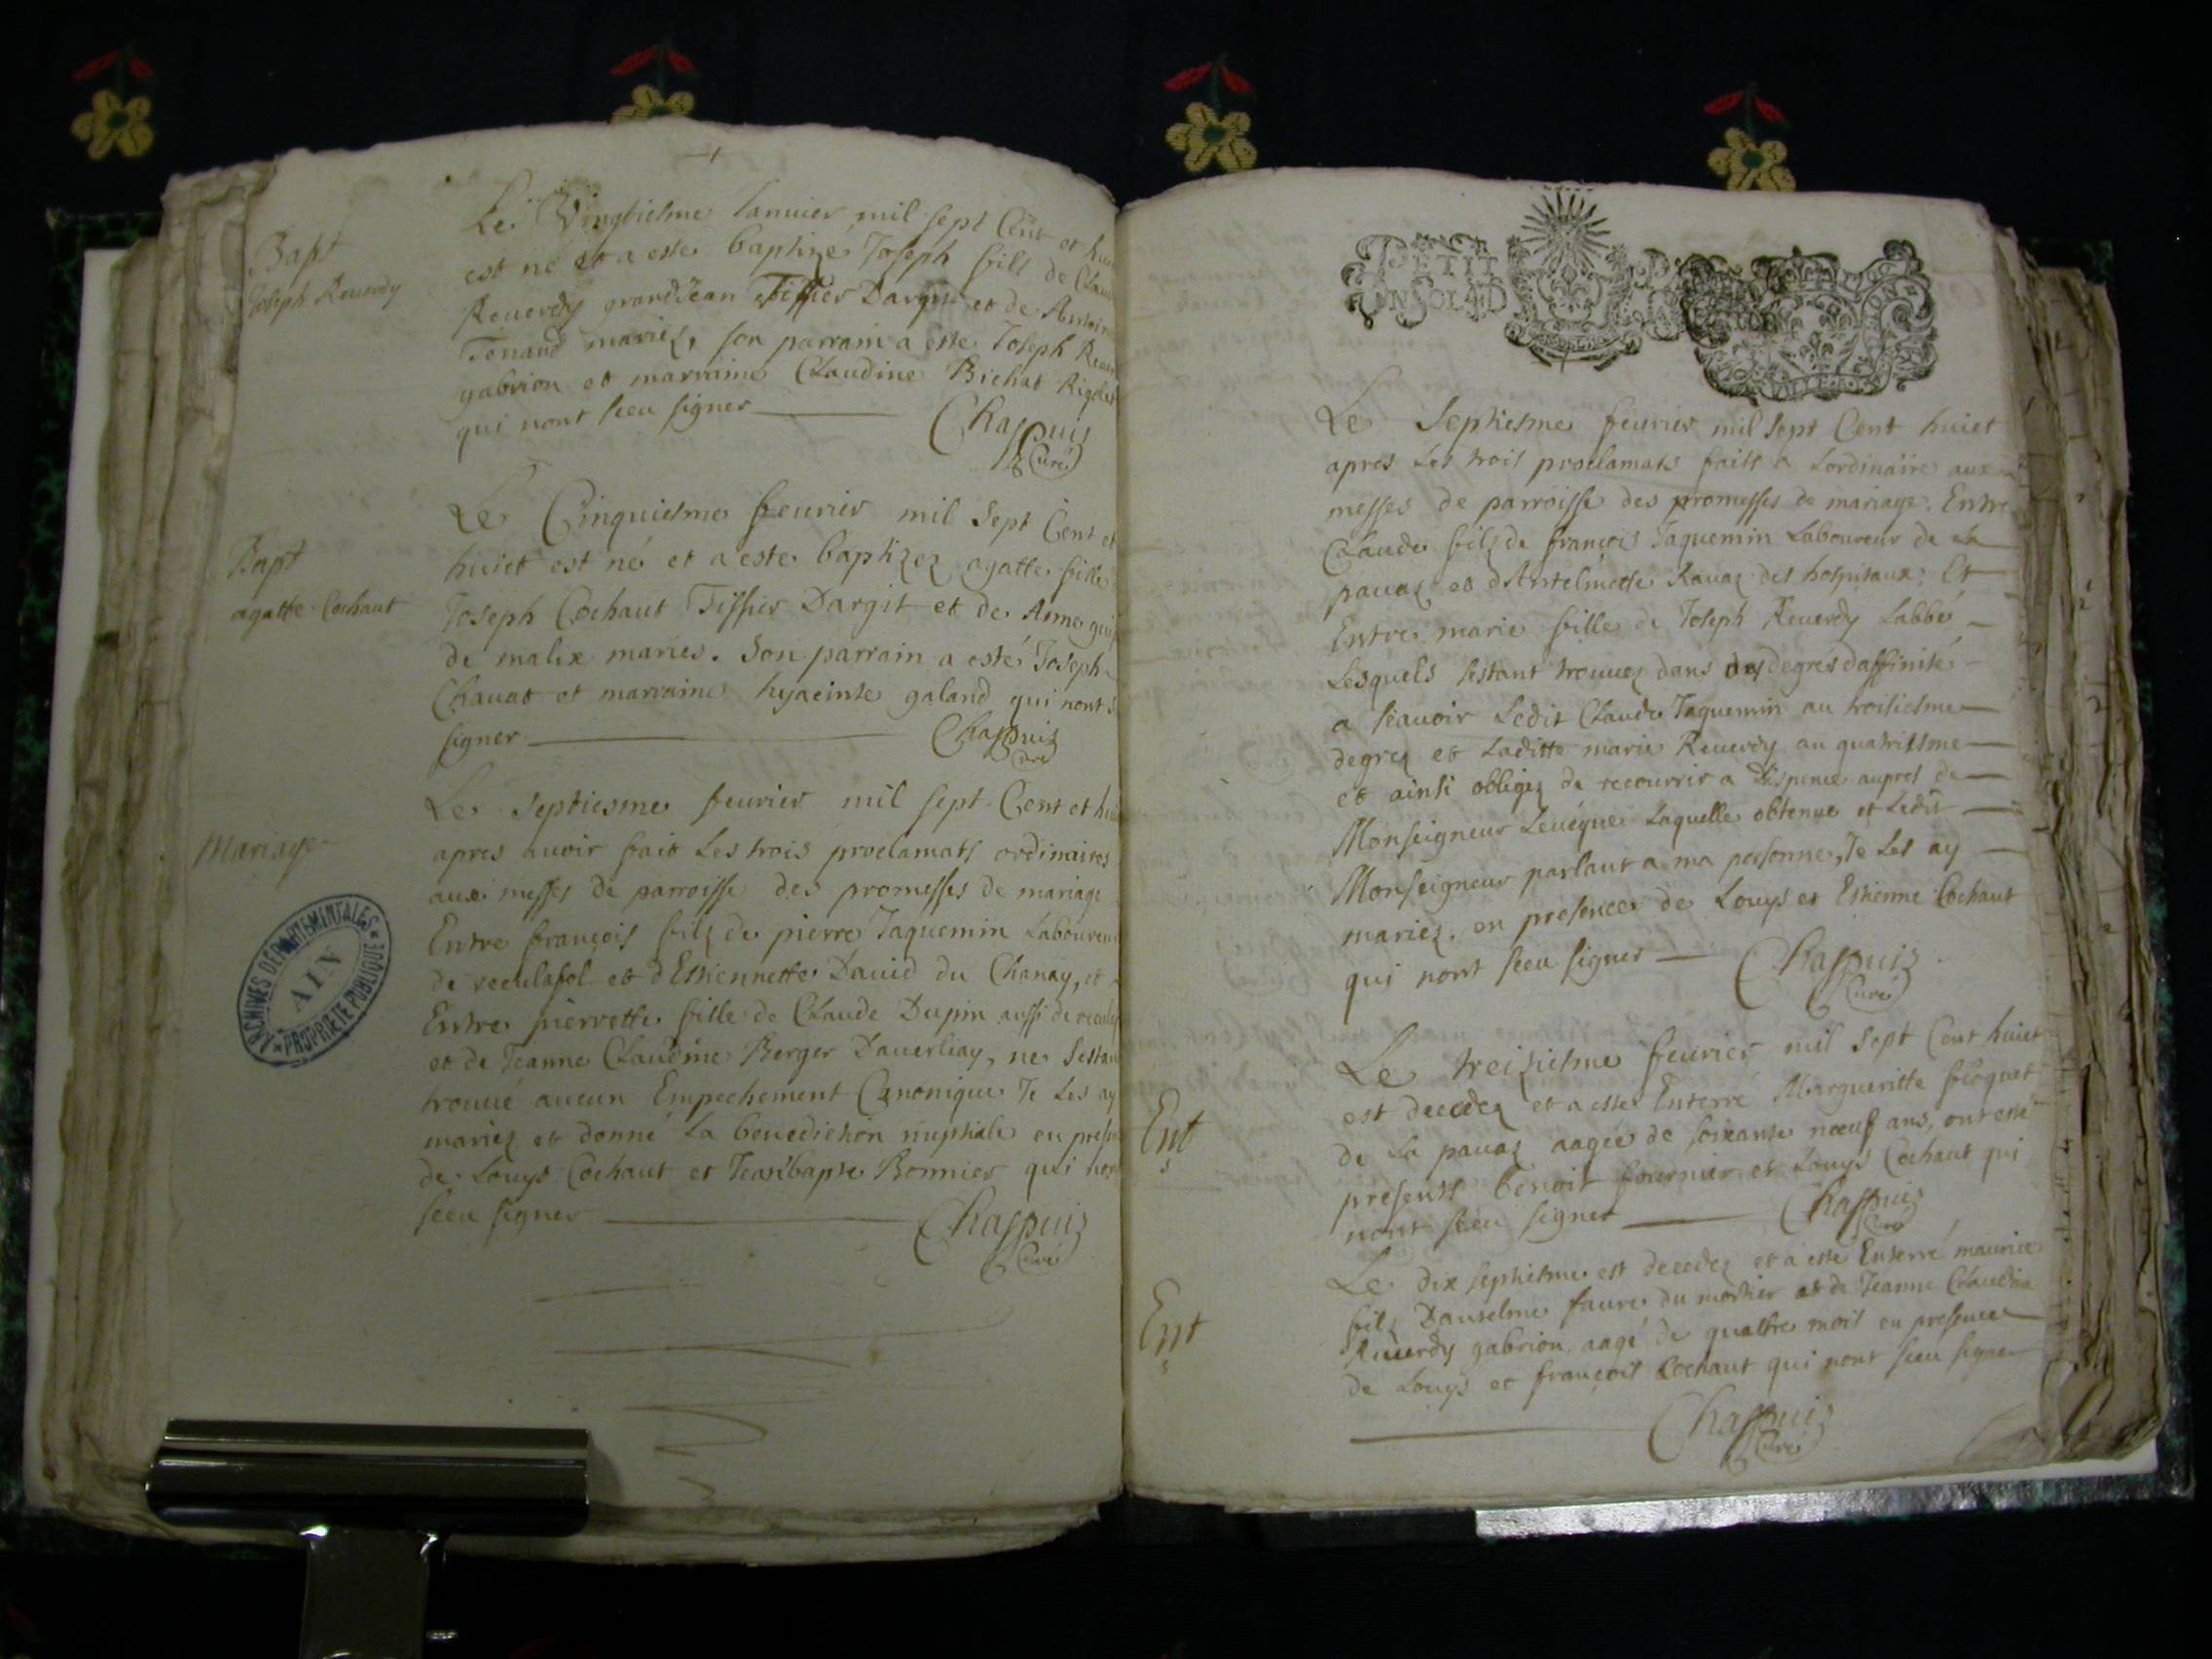 Bapt
Joseph Reuerdy
Le Vingtiesme Januier mil sept Cent et
est né et a este baptizé Joseph fils de
Reuerdy grandJean Tissier Dargit et de
Tenand mariez, son parrain a este Joseph
gabrion et marraine Claudine Bichat
qui nont sceu signer
Chappuiz
Curé
Bapt
agatte Cochaut
Le Cinquiesme feurier mil sept Cent et
huict est né et a este baptizez agatte fille
Joseph Cochaut Tissier Dargit et de Anne
de malix maries. Son parrain a esté Joseph
Chauat et marraine hyacinte galand qui nont
signer
Chappuiz
Curé
Mariage
Le septiesme feurier mil sept Cent et
apres auoir fait Les trois proclamats ordinaires
aux messes de parroisse des promesses de mariage
Entre françois filz de pierre Jaquemin Laboureur
de reculafol et dEstiennette Dauid du Chanay, et
Entre pierrette fille de Claude Dupin aussi de
et de Jeanne Claudine Berger Dauerliay, ne
trouué aucun Empechement Canonique Je Les ay
mariez et donné La benediction nuptiale en
de Louys Cochaut et Jeanbapte Bonnier qui
sceu signer
Chappuiz
Curé
ARCHIVES DEPARTEMENTALES
AIN
PROPRIETE PUBLIQUE
PETIT
UN SOL
Le Septiesme feurier mil sept Cent huict
apres Les trois proclamats faits a Lordinaire aux
messes de parroisse des promesses de mariage. Entre
Claude filz de françois Jaquemin Laboureur de La
pauaz et dAntelmette Rauaz des hospitaux. Et
Entre marie fille de Joseph Reuerdy Labbé
Lesquels sestant trouuez dans des degrés daffinité
a scauoir Ledit Claude Jaquemin au troisiesme
degrez et Laditte marie Reuerdy au quatriesme
et ainsi obligez de recourrir a Dispence aupres de
Monseigneur Leuéque Laquelle obtenue et Ledit
Monseigneur parlant a ma personne, Je Les ay
mariez. en presence de Louys et Estienne Cochaut
qui nont sceu signer
Chappuiz
Curé
Ent
Le treiziesme feurier mil sept Cent huict
est decedez et a este Enterré Margueritte floquet
de La pauaz aagée de soixante noeuf ans, ont esté
presents benoit fournier et Louys Cochaut qui
nont sceu signer
Chappuiz
Curé
Ent
Le dix septiesme est decedez et a esté Enterré maurice
filz Danselme faure du mortier et de Jeanne Claudine
Reuerdy gabrion, aagé de quattre mois en presence
de Louys et françois Cochaut qui nont sceu signer
Chappuiz
Curé